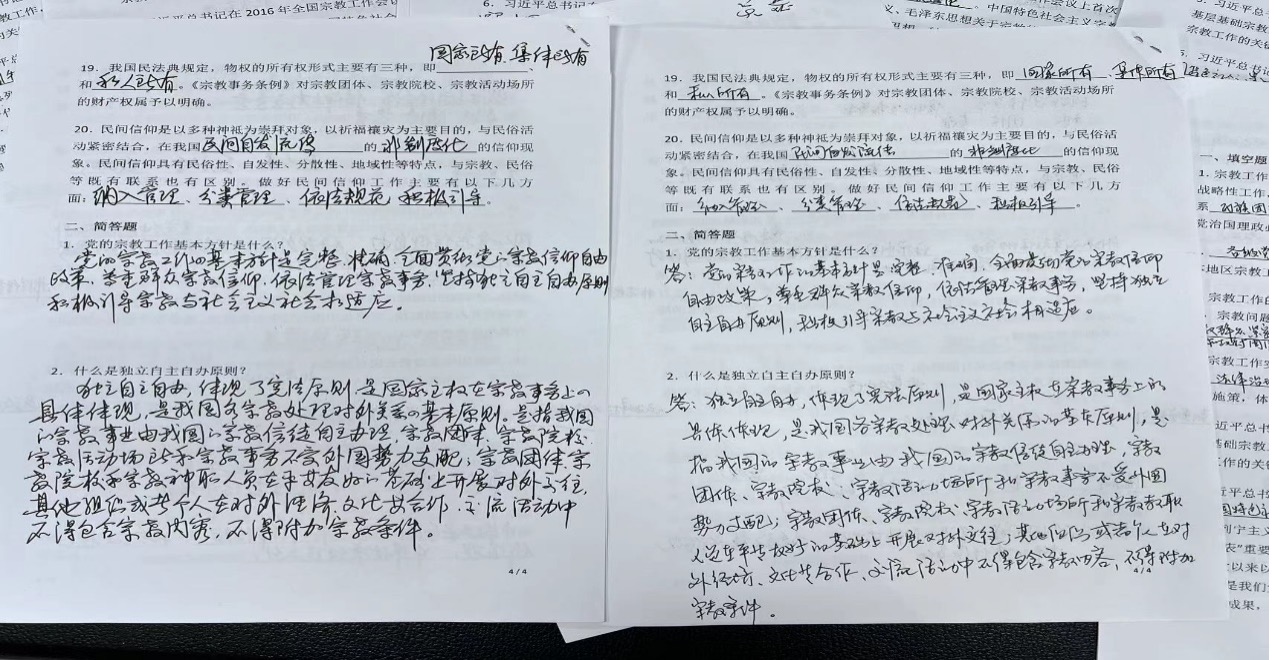 近平总书记在2016年全国宗教工作会
国家所有、集体所有
19. 我国民法典规定，物权的所有权形式主要有三种，即
和 私人所有 。《宗教事务条例》对宗教团体、宗教院校、宗教活动场所
的财产权属予以明确。
20. 民间信仰是以多种神祇为崇拜对象，以祈福禳灾为主要目的，与民俗活
动紧密结合，在我国 民间自发流传 的 非制度化 的信仰现
象。民间信仰具有民俗性、自发性、分散性、地域性等特点，与宗教、民俗
等既有联系也有区别。做好民间信仰工作主要有以下几方
面：纳入管理、分类管理、依法规范、积极引导。
二、简答题
1. 党的宗教工作基本方针是什么？
党的宗教工作的基本方针是完整、准确、全面贯彻党的宗教信仰自由
政策，尊重群众宗教信仰，依法管理宗教事务，坚持独立自主自办原则
积极引导宗教与社会主义社会相适应。
2. 什么是独立自主自办原则？
独立自主自办，体现了宪法原则，是国家主权在宗教事务上的
具体体现，是我国各宗教处理对外关系的基本原则。是指我国
的宗教事业由我国的宗教信徒自主办理，宗教团体、宗教院校、
宗教活动场所和宗教事务不受外国势力支配；宗教团体、宗
教院校和宗教神职人员在平等友好的基础上开展对外交往，
其他组织或者个人在对外经济、文化等合作、交流活动中
不得包含宗教内容，不得附加宗教条件。
4/4
19. 我国民法典规定，物权的所有权形式主要有三种，即 国家所有 、集体所有
和 私人所有 。《宗教事务条例》对宗教团体、宗教院校、宗教活动场所
的财产权属予以明确。
20. 民间信仰是以多种神祇为崇拜对象，以祈福禳灾为主要目的，与民俗活
动紧密结合，在我国 民间自发流传 的 非制度化 的信仰现
象。民间信仰具有民俗性、自发性、分散性、地域性等特点，与宗教、民俗
等既有联系也有区别。做好民间信仰工作主要有以下几方
面：纳入管理、分类管理、依法规范、积极引导。
二、简答题
1. 党的宗教工作基本方针是什么？
答：党的宗教工作的基本方针是完整、准确、全面贯彻党的宗教信仰
自由政策，尊重群众宗教信仰，依法管理宗教事务，坚持独立
自主自办原则，积极引导宗教与社会主义社会相适应。
2. 什么是独立自主自办原则？
答：独立自主自办，体现了宪法原则，是国家主权在宗教事务上的
具体体现，是我国各宗教处理对外关系的基本原则，是
指我国的宗教事业由我国的宗教信徒自主办理，宗教
团体、宗教院校、宗教活动场所和宗教事务不受外国
势力支配；宗教团体、宗教院校、宗教活动场所和宗教教职
人员在平等友好的基础上开展对外交往；其他组织或者个人在对
外经济、文化等合作、交流活动中不得包含宗教内容，不得附加
宗教条件。
4/4
一、填空题